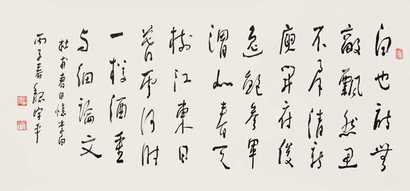 白也詩無
敵飄然思
不群清新
庾開府俊
逸鮑參軍
渭北春天
樹江東日
暮雲何时
一樽酒重
与細論文
杜甫春日憶李白
丙子春魏宇平